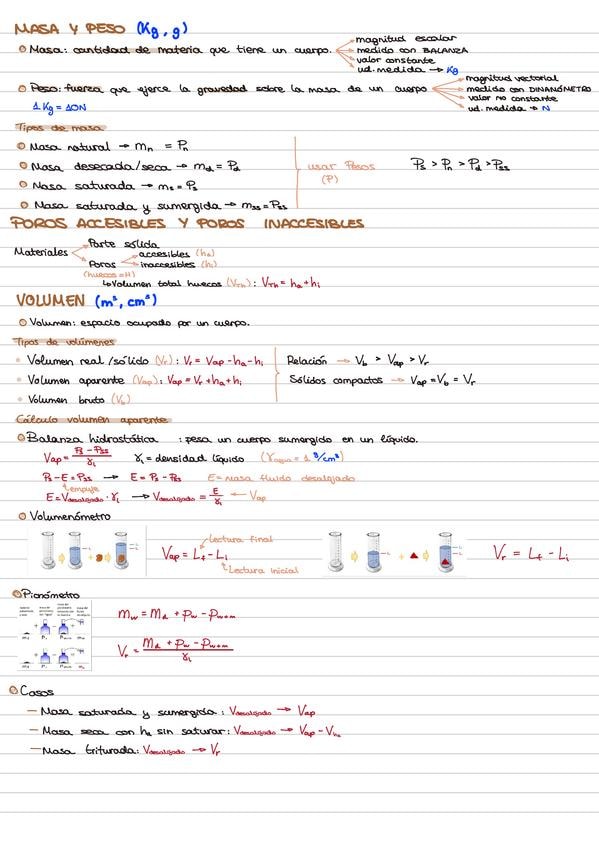 MASA Y PESO (Kg, g)
Masa: cantidad de materia que tiene un cuerpo.
magnitud escalar
medido con BALANZA
valor constante
ud. medida → Kg
Peso: fuerza que ejerce la gravedad sobre la masa de un cuerpo
magnitud vectorial
medido con DINAMÓMETRO
valor no constante
ud. medida → N
1 Kg = 10N
Tipos de masa
Masa natural → mn = Pn
Masa desecada/seca → md = Pd
Masa saturada → ms = Ps
Masa saturada y sumergida → mss = Pss
usar Pesos
(P)
Ps > Pn > Pd > Pss
POROS ACCESIBLES Y POROS INACCESIBLES
Materiales
Parte sólida
Poros
(huecos=H)
accesibles (ha)
inaccesibles (hi)
↳Volumen total huecos (VTh): VTh = ha + hi
VOLUMEN (m³, cm³)
Volumen: espacio ocupado por un cuerpo.
Tipos de volúmenes
Volumen real/sólido (Vr): Vr = Vap - ha - hi
Volumen aparente (Vap): Vap = Vr + ha + hi
Volumen bruto (Vb)
Relación → Vb > Vap > Vr
Sólidos compactos → Vap = Vb = Vr
Cálculo volumen aparente
Balanza hidrostática : pesa un cuerpo sumergido en un líquido.
Vap = Ps - Pss / γi γi = densidad líquido (γagua = 1 g/cm³)
Ps - E = Pss → E = Ps - Pss E = masa fluido desalojado
empuje
E = Vdesalojado · γi → Vdesalojado = E / γi ← Vap
Volumenómetro
Vap = Lf - Li
Lectura final
Lectura inicial
Vr = Lf - Li
Picnómetro
mw = Md + Pw - Pw+m
Vr = Md + Pw - Pw+m / γi
Casos
— Masa saturada y sumergida: Vdesalojado → Vap
— Masa seca con ha sin saturar: Vdesalojado → Vap - Vha
— Masa triturada: Vdesalojado → Vr